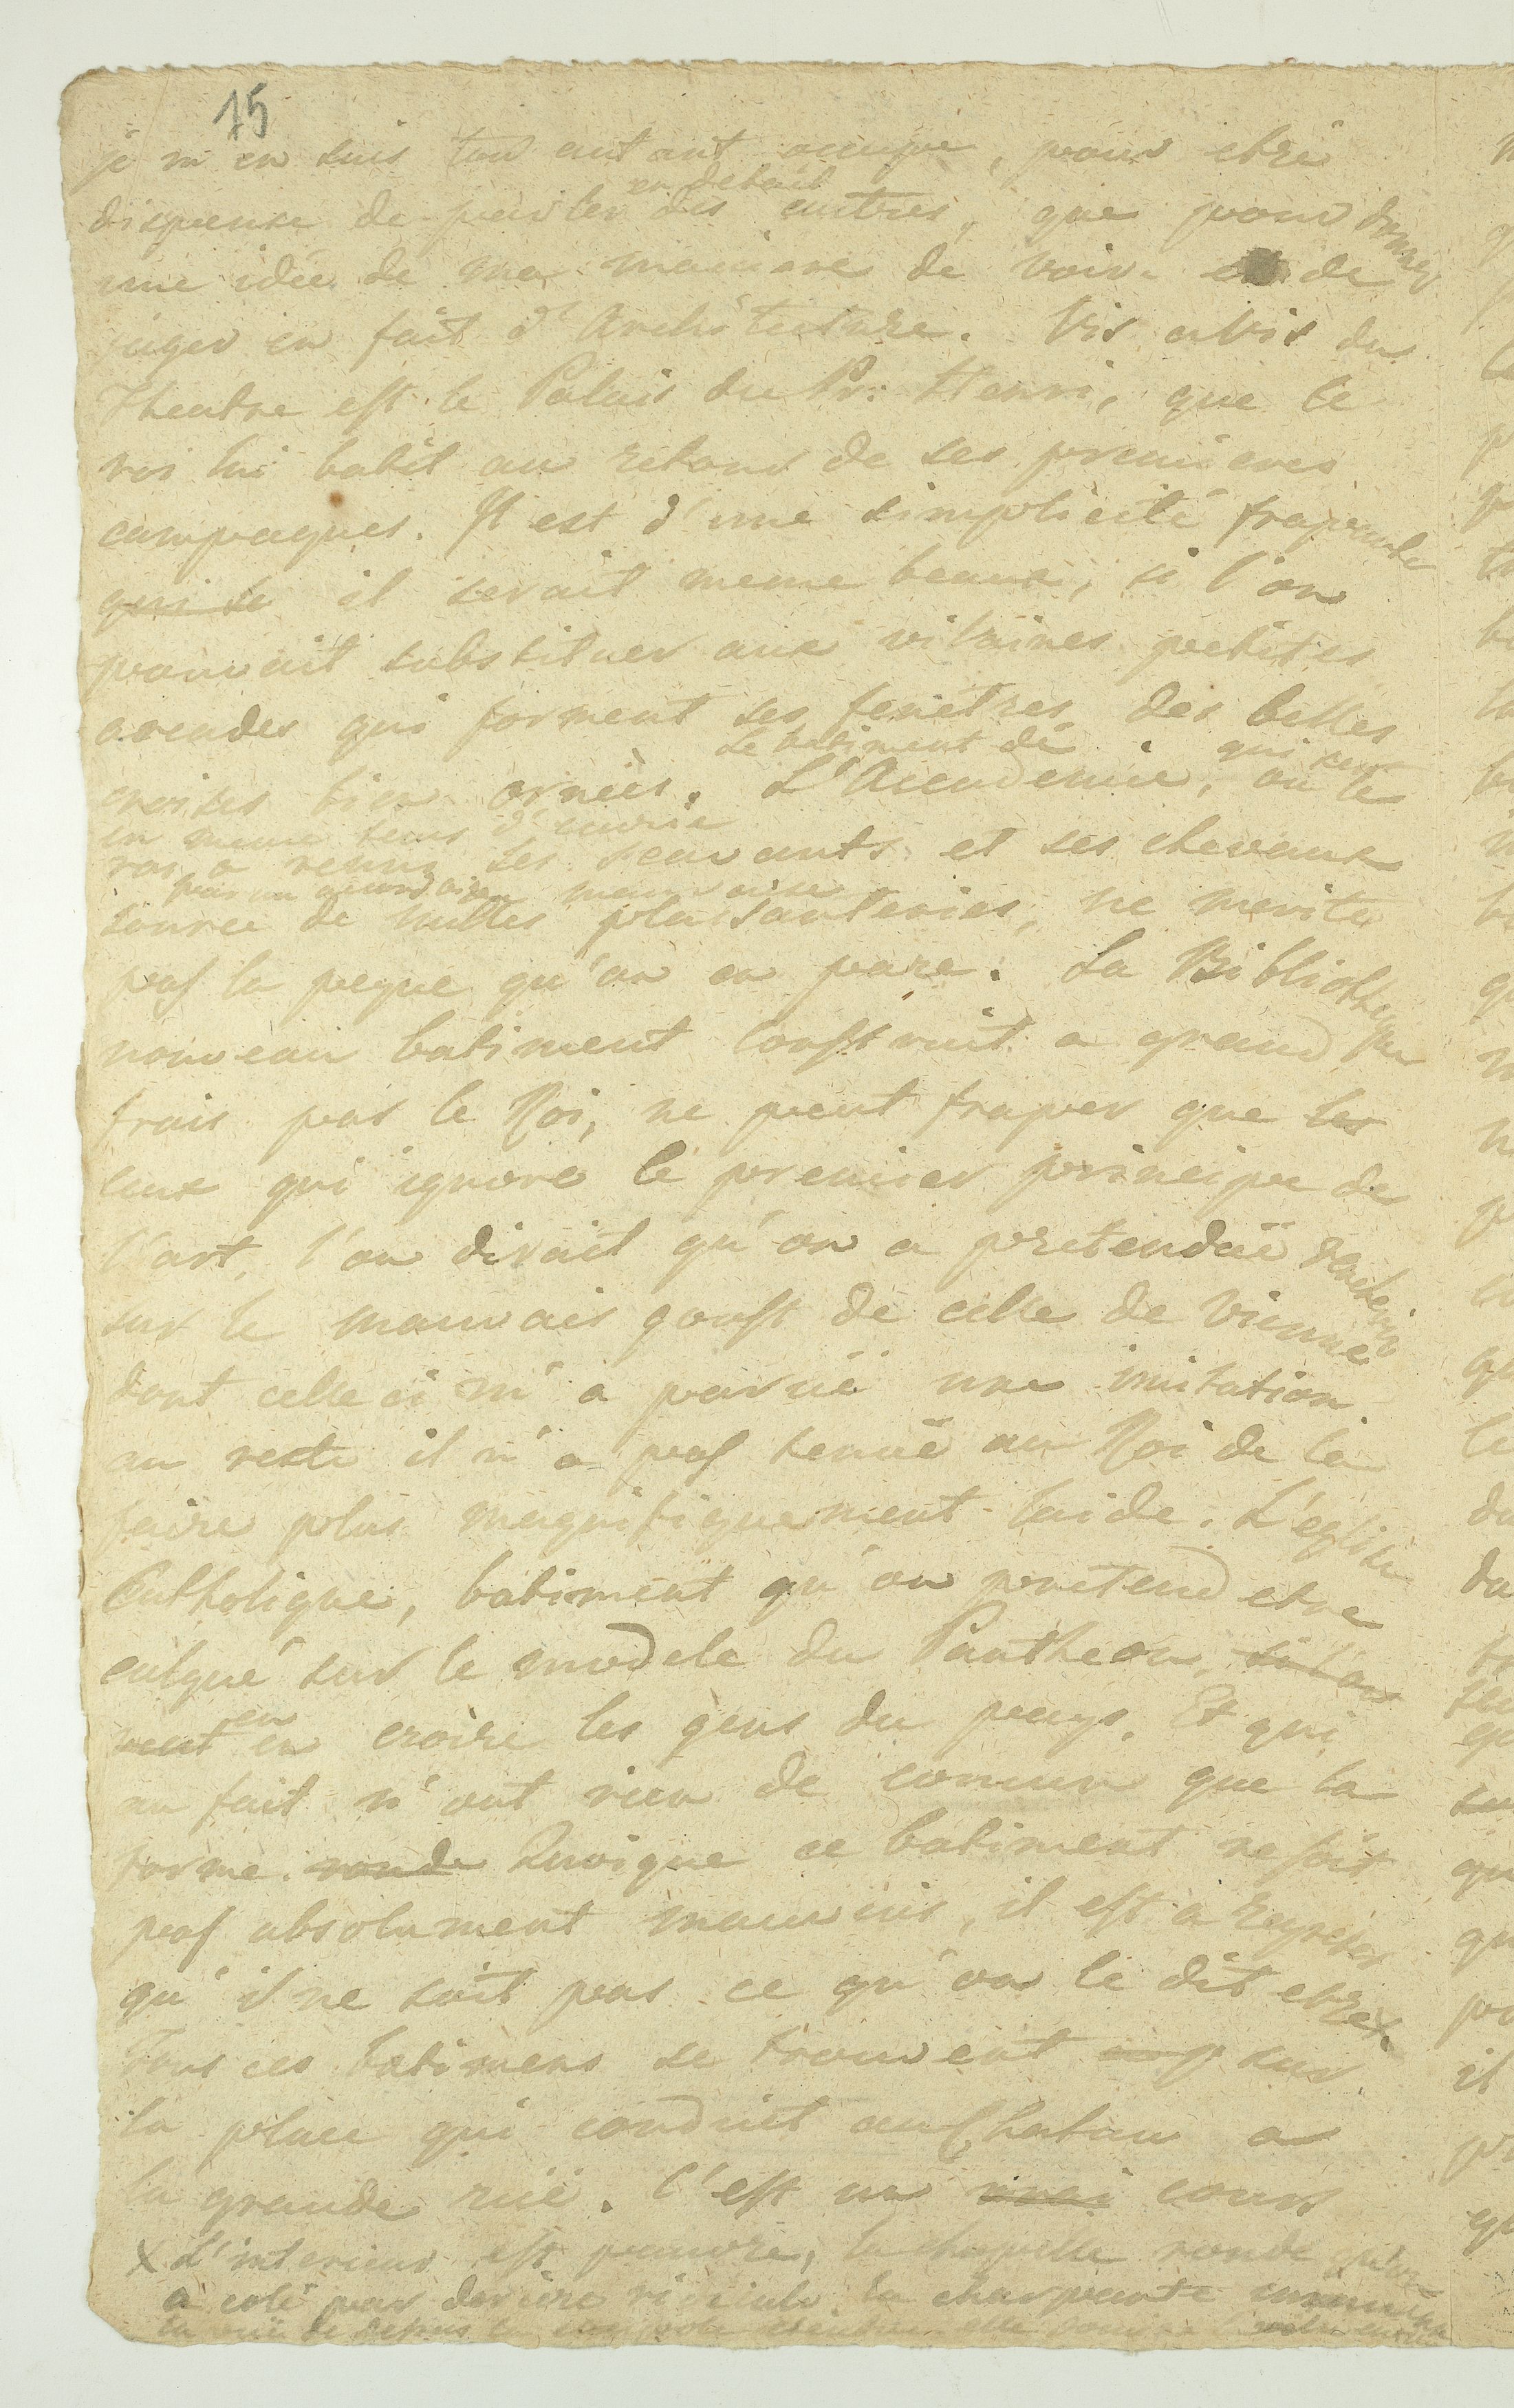 15
je m'en suis tout autant occupé, pour etre
en detail
dispensé de parler des autres, que pour donner
une idée de ma maniere de voir et de
juger en fait d'Architecture. Vis a Vis du
Theatre est le Palais du Pr: Henri, que le
roi lui batit au retour de ses premieres
campagnes. Il est d'une simplicité frapante
qui se il serait meme beaux, si l'on
pouvait substituer aux vilaines petites
arcades qui forment ses fenetres, des belles
Le batiment de qui sert
croises bien ornées. L'Academie, ou le
en meme tems d'ecurie
roi a reuni ses scavants et ses chevaux
mauvaise
source de milles plaisanteries, ne merite
pas la peyne qu'on en parle. La Bibliotheque
nouveau batiment construit a grand
frais par le Roi, ne peut fraper que les
ceux qui ignore le premier principe de
l'art, l'on dirait qu'on a pretendüe
sur le mauvais goust de celle de Vienne
dont celle ci m'a parüe une imitation
au reste il n'a pas tenüe au Roi de la
faire plus magnifiquement laide. L'eglise
Catholique, batiment qu'on pretend etre
calqué sur le modele du Pantheon, si l'on
en
veut en croire les gens du pays. Et qui
au fait n'ont rien de comun que la
forme. ronde Quoique ce batiment ne soit
pas absolument mauvais, il est a regreter
qu'il ne soit pas ce qu'on le dit etre X.
Tous ces batimens se trouvent sur
la place qui conduit au Chateau a
la grande rüe. C'est un vrai cours
X L'interieur est pauvre, la chapelle ronde qu'on
a colé par deriere ridicule la charpente